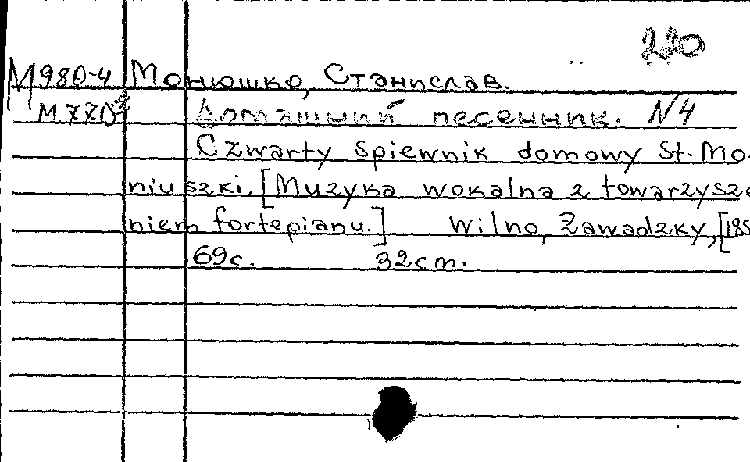 220
M980-4 Монюшко, Станислав.
Домашний песенник. N4
Czwarty spiewnik domowy St. Mo-
niuszki. [Muzyka wokalna z towarzysze
niem fortepianu.] Wilno, Zawadzky, [185
69с. 32cm.